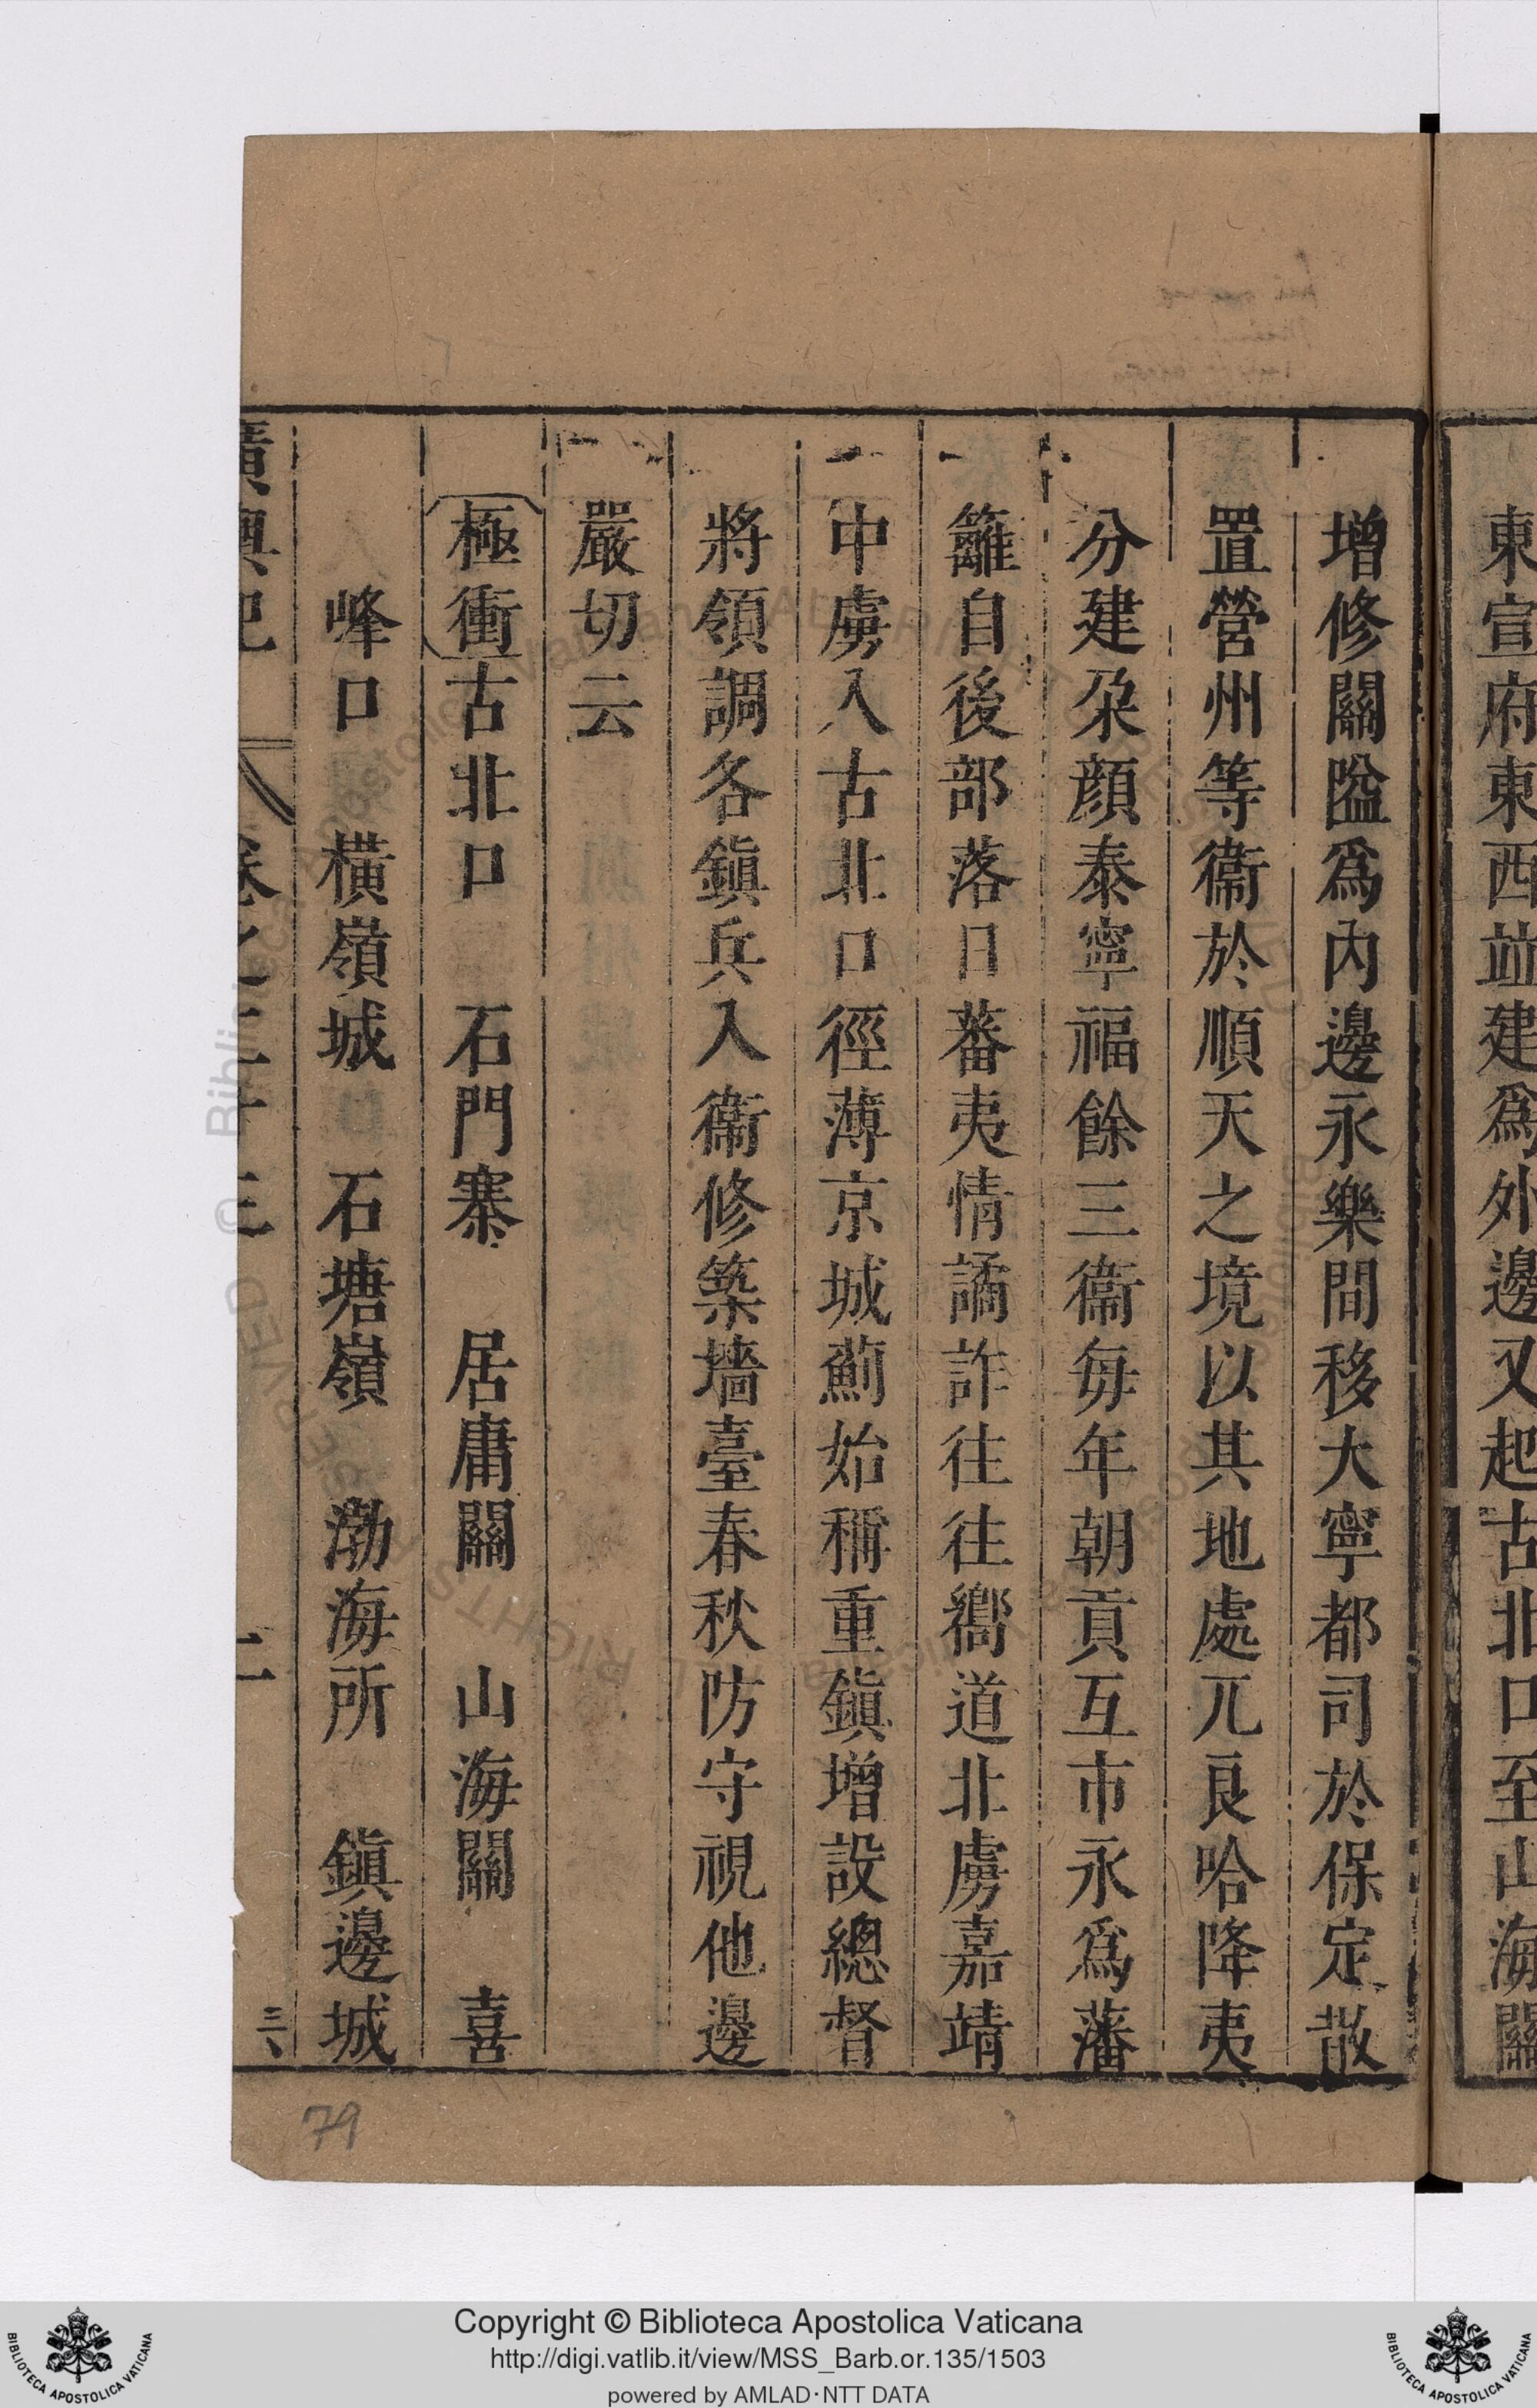 東宣府東西並建爲外邊又起古北口至山海關
增修關隘爲內邊永樂間移大寧都司於保定散
置營州等衞於順天之境以其地處兀良哈降夷
分建朶顔泰寧福餘三衞毎年朝貢互市永爲藩
籬自後部落日蕃夷情譎詐往往嚮道北虜嘉靖
中虜入古北口徑薄京城薊始稱重鎭增設總督
將領調各鎭兵入衞修築墻臺春秋防守視他邊
嚴切云
極衝古北口 石門寨 居庸關 山海關 喜
峰口 橫嶺城 石塘嶺 渤海所 鎭邊城
廣輿記 卷之二十三 二
79
Copyright © Biblioteca Apostolica Vaticana
http://digi.vatlib.it/view/MSS_Barb.or.135/1503
powered by AMLAD·NTT DATA
BIBLIOTECA APOSTOLICA VATICANA
BIBLIOTECA APOSTOLICA VATICANA